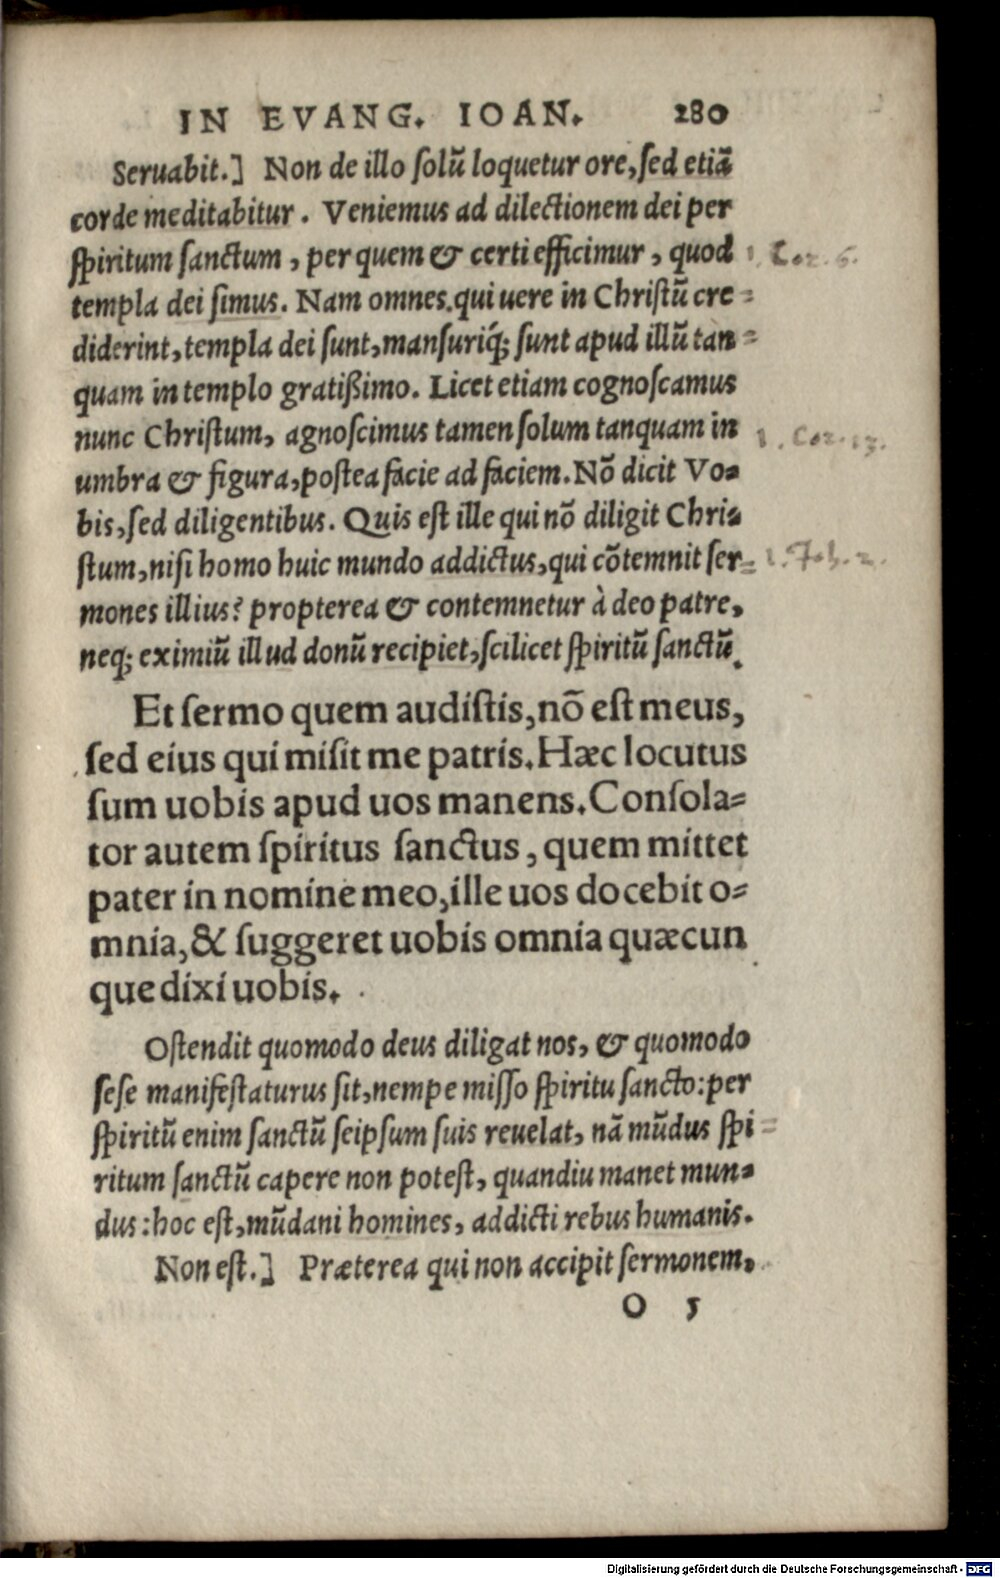 IN EVANG. IOAN. 280
Seruabit.] Non de illo solū loquetur ore, sed etiā
corde meditabitur. Veniemus ad dilectionem dei per
spiritum sanctum, per quem & certi efficimur, quod
1. Cor. 6.
templa dei simus. Nam omnes, qui uere in Christū cre=
diderint, templa dei sunt, mansuriq́; sunt apud illū tan=
quam in templo gratißimo. Licet etiam cognoscamus
nunc Christum, agnoscimus tamen solum tanquam in
1. Cor. 13.
umbra & figura, postea facie ad faciem. Nō dicit Vo=
bis, sed diligentibus. Quis est ille qui nō diligit Chri=
stum, nisi homo huic mundo addictus, qui cōtemnit ser=
1. Joh. 2.
mones illius? propterea & contemnetur à deo patre,
neq; eximiū illud donū recipiet, scilicet spiritū sanctū.
Et sermo quem audistis, nō est meus,
sed eius qui misit me patris. Hæc locutus
sum uobis apud uos manens. Consola=
tor autem spiritus sanctus, quem mittet
pater in nomine meo, ille uos docebit o=
mnia, & suggeret uobis omnia quæcun
que dixi uobis.
Ostendit quomodo deus diligat nos, & quomodo
sese manifestaturus sit, nempe misso spiritu sancto: per
spiritū enim sanctū seipsum suis reuelat, nā mūdus spi=
ritum sanctū capere non potest, quandiu manet mun=
dus: hoc est, mūdani homines, addicti rebus humanis.
Non est.] Præterea qui non accipit sermonem,
O 5
Digitalisierung gefördert durch die Deutsche Forschungsgemeinschaft - DFG